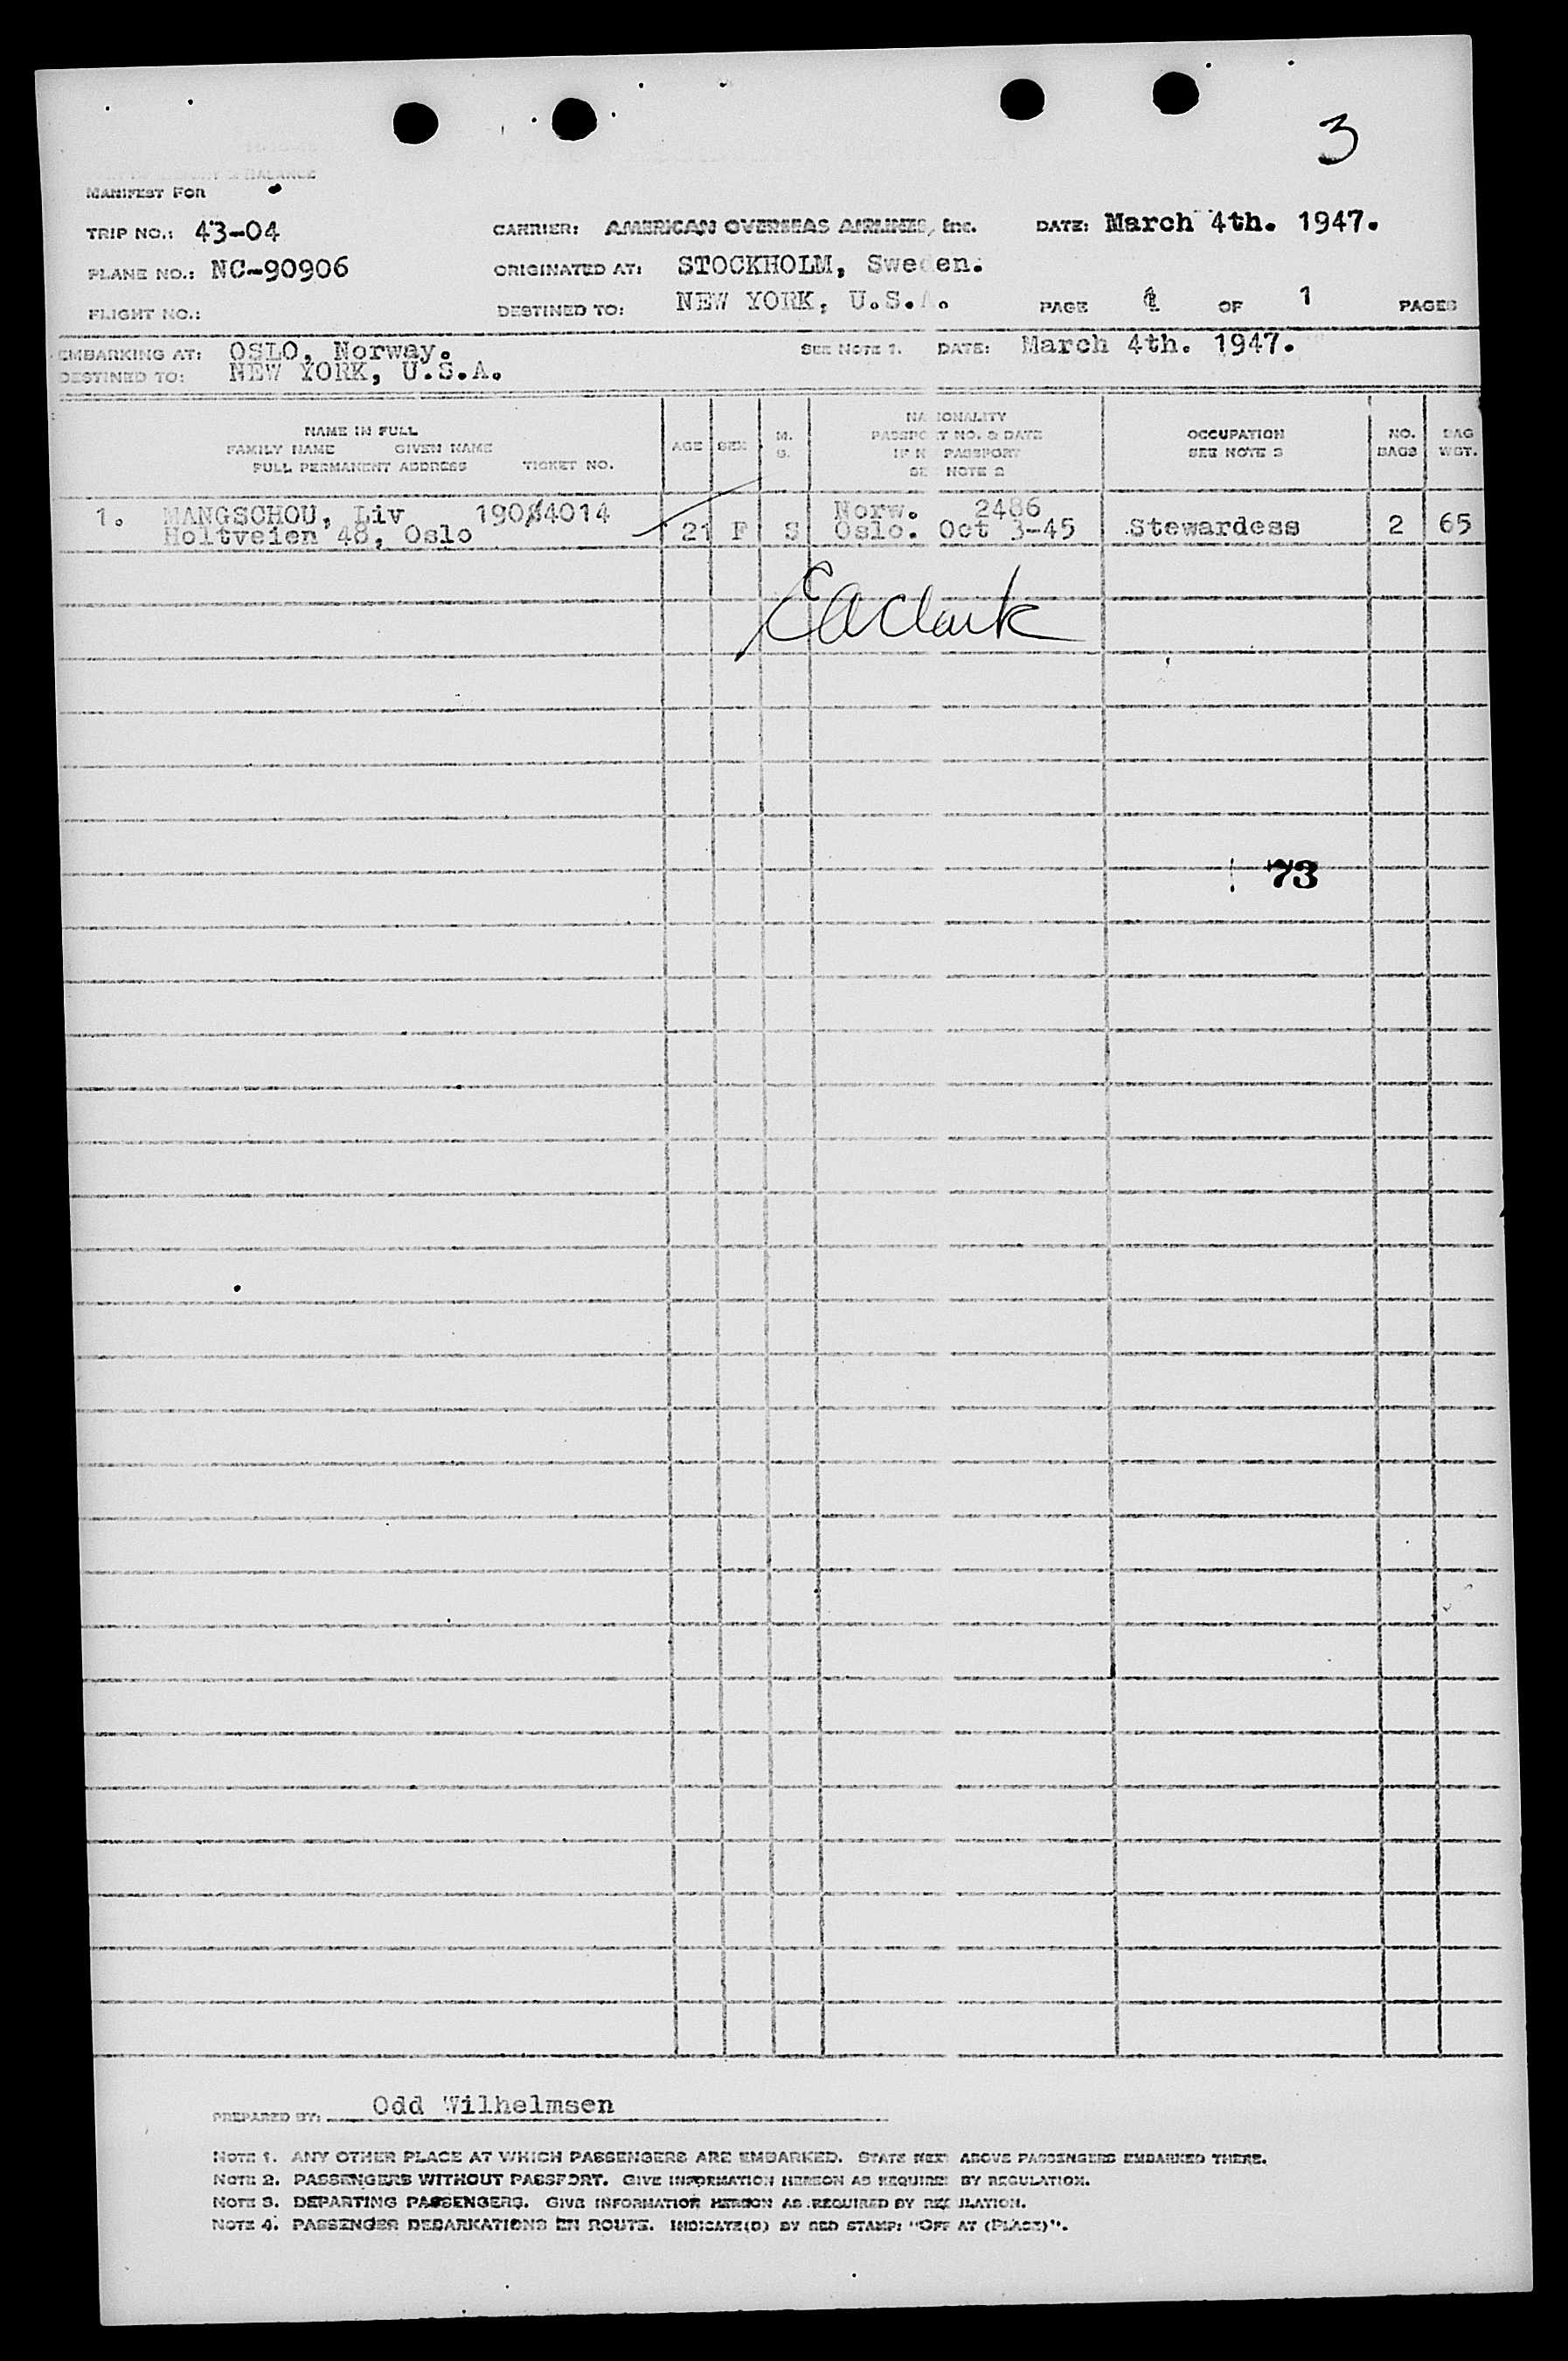 3
& BALANCE
MANIFEST FOR
TRIP NO.: 43-04 CARRIER: AMERICAN OVERSEAS AIRLINES, Inc. DATE: March 4th. 1947.
PLANE NO.: NC-90906 ORIGINATED AT: STOCKHOLM, Sweden.
FLIGHT NO.: DESTINED TO: NEW YORK, U.S.A. PAGE 1 OF 1 PAGES
EMBARKING AT: OSLO, Norway. SEE NOTE 1. DATE: March 4th. 1947.
DESTINED TO: NEW YORK, U.S.A.
NAME IN FULL
FAMILY NAME GIVEN NAME
FULL PERMANENT ADDRESS TICKET NO.
AGE
SEX
M.
S.
NATIONALITY
PASSPORT NO. & DATE
IF NO PASSPORT
SEE NOTE 2
OCCUPATION
SEE NOTE 3
NO.
BAGS
BAG
WGT.
1. MANGSCHOU, Liv 19084014 Norw. 2486
Holtveien 48, Oslo 21 F S Oslo. Oct 3-45 Stewardess 2 65
EAClark
73
PREPARED BY: Odd Wilhelmsen
NOTE 1. ANY OTHER PLACE AT WHICH PASSENGERS ARE EMBARKED. STATE NEXT ABOVE PASSENGERS EMBARKED THERE.
NOTE 2. PASSENGERS WITHOUT PASSPORT. GIVE INFORMATION HEREON AS REQUIRED BY REGULATION.
NOTE 3. DEPARTING PASSENGERS. GIVE INFORMATION HEREON AS REQUIRED BY REGULATION.
NOTE 4. PASSENGER DEBARKATIONS EN ROUTE. INDICATE(D) BY RED STAMP: "OFF AT (PLACE)".